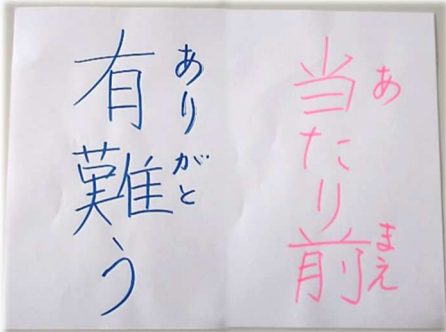 当たり前
あ
まえ
有難う
ありがと